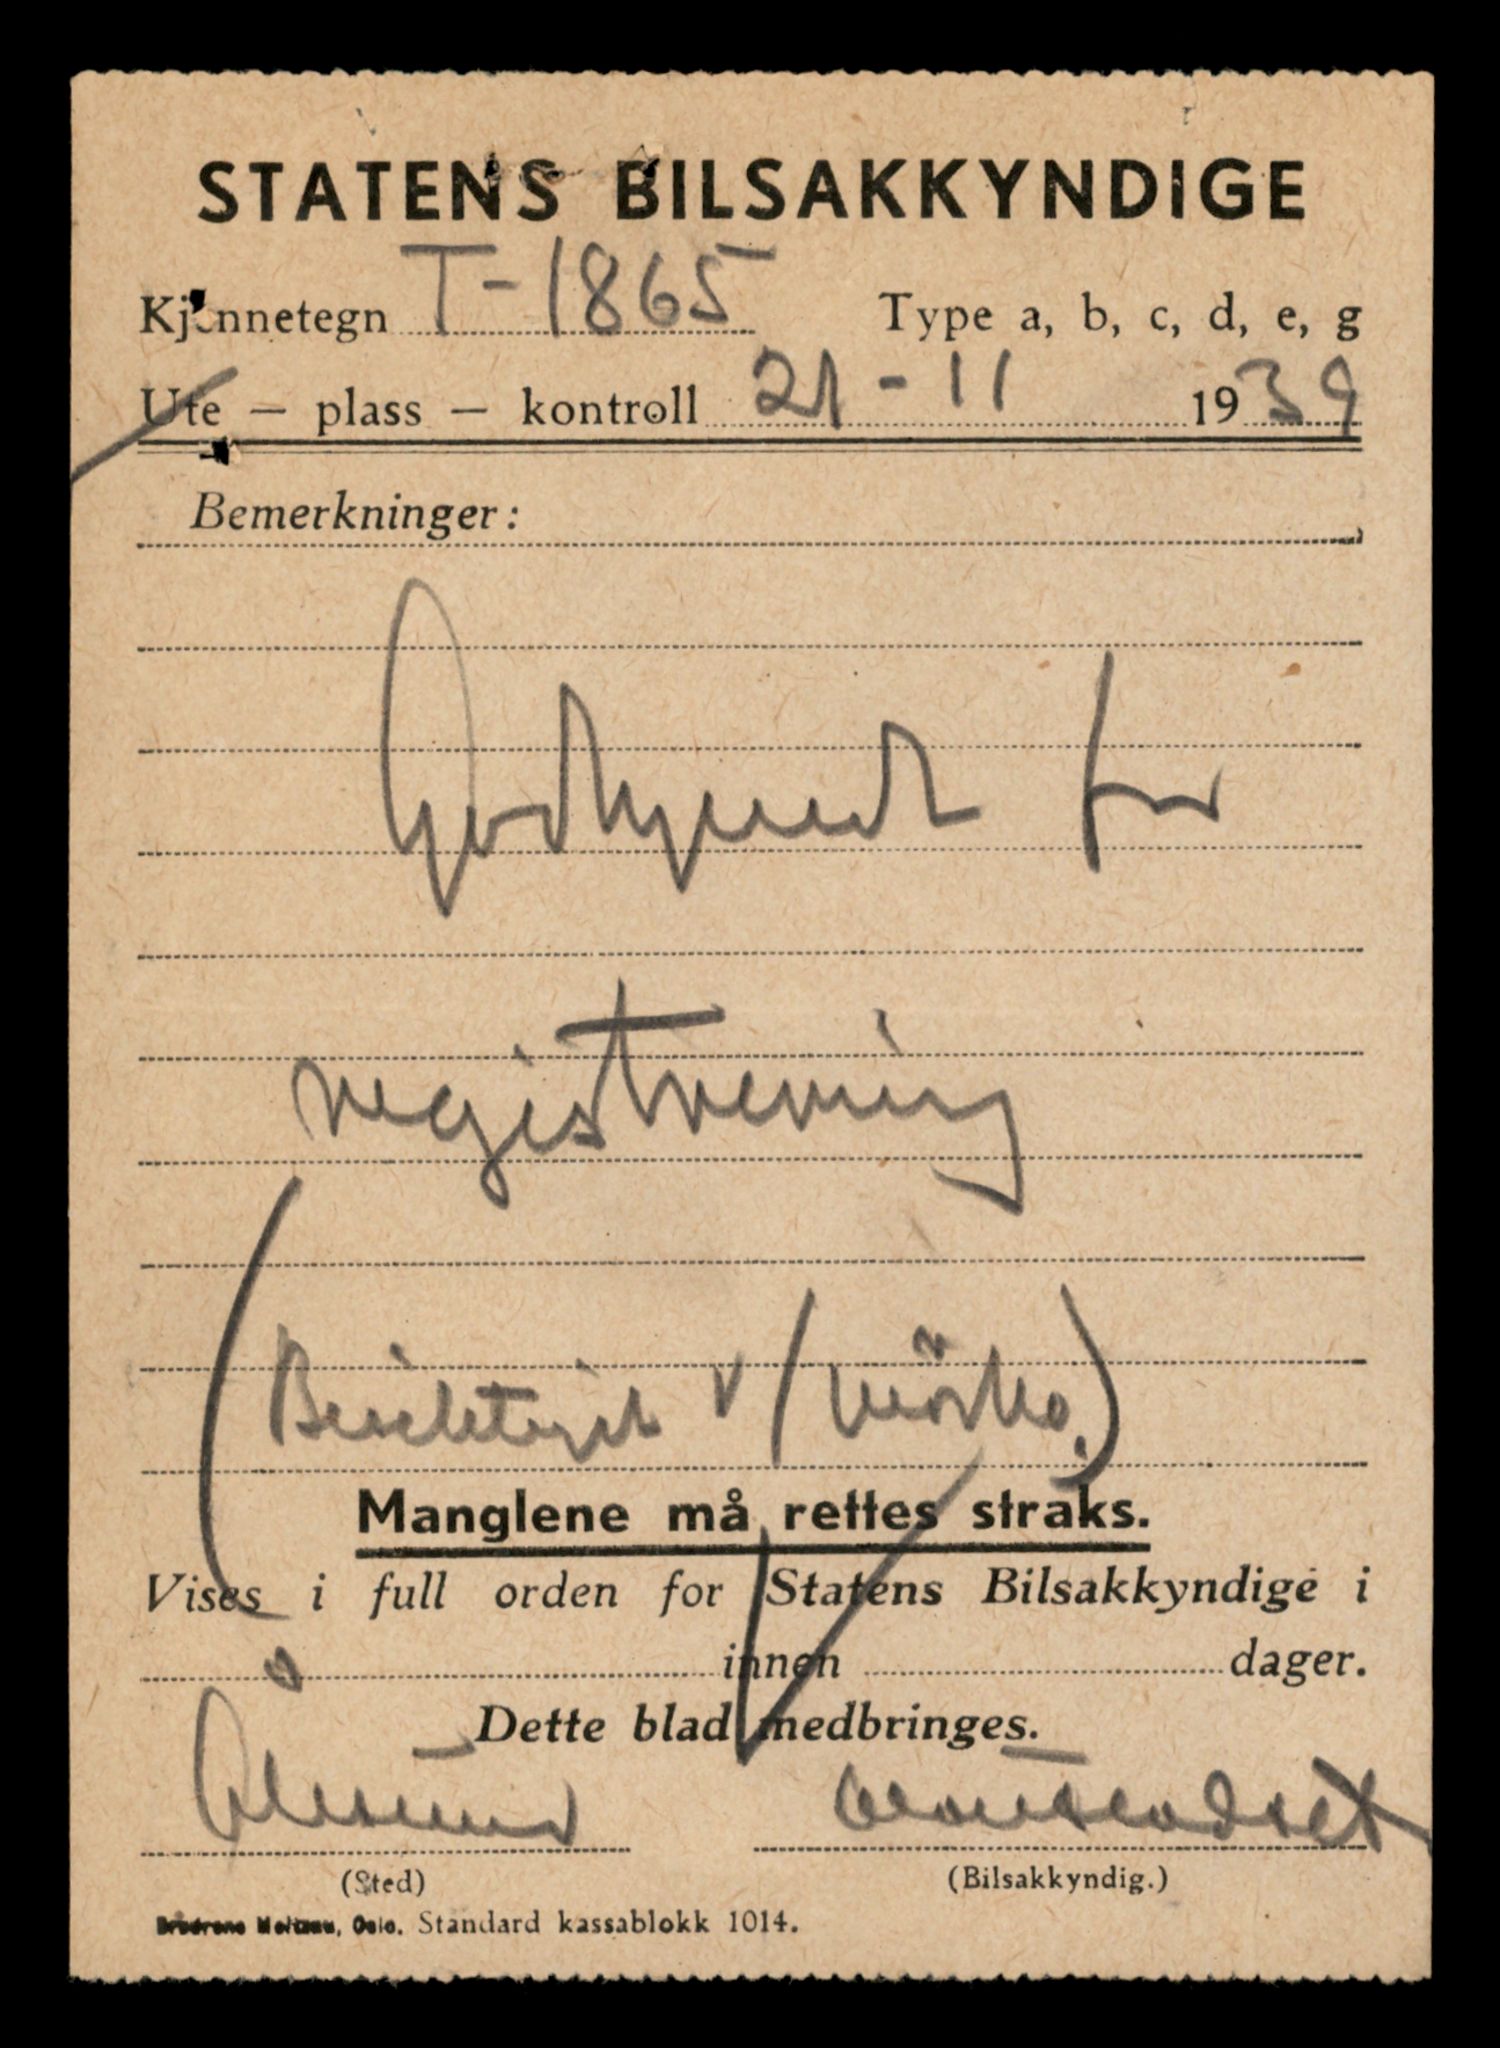 STATENS BILSAKKYNDIGE
Kjennetegn T-1865 Type a, b, c, d, e, g
Ute — plass — kontroll 21-11 1939
Bemerkninger:
Godkjendt for
registrering
(Besiktiget v/ mörke.)
Manglene må rettes straks.
Vises i full orden for Statens Bilsakkyndige i
innen dager.
Dette blad medbringes.
Ålesund
(Sted) (Bilsakkyndig.)
Brødrene Meltzau, Oslo. Standard kassablokk 1014.